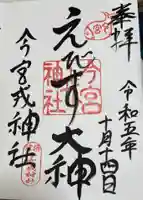 奉拝
令和五年
十月十四日
えびす大神
今宮
神社
今宮戎神社